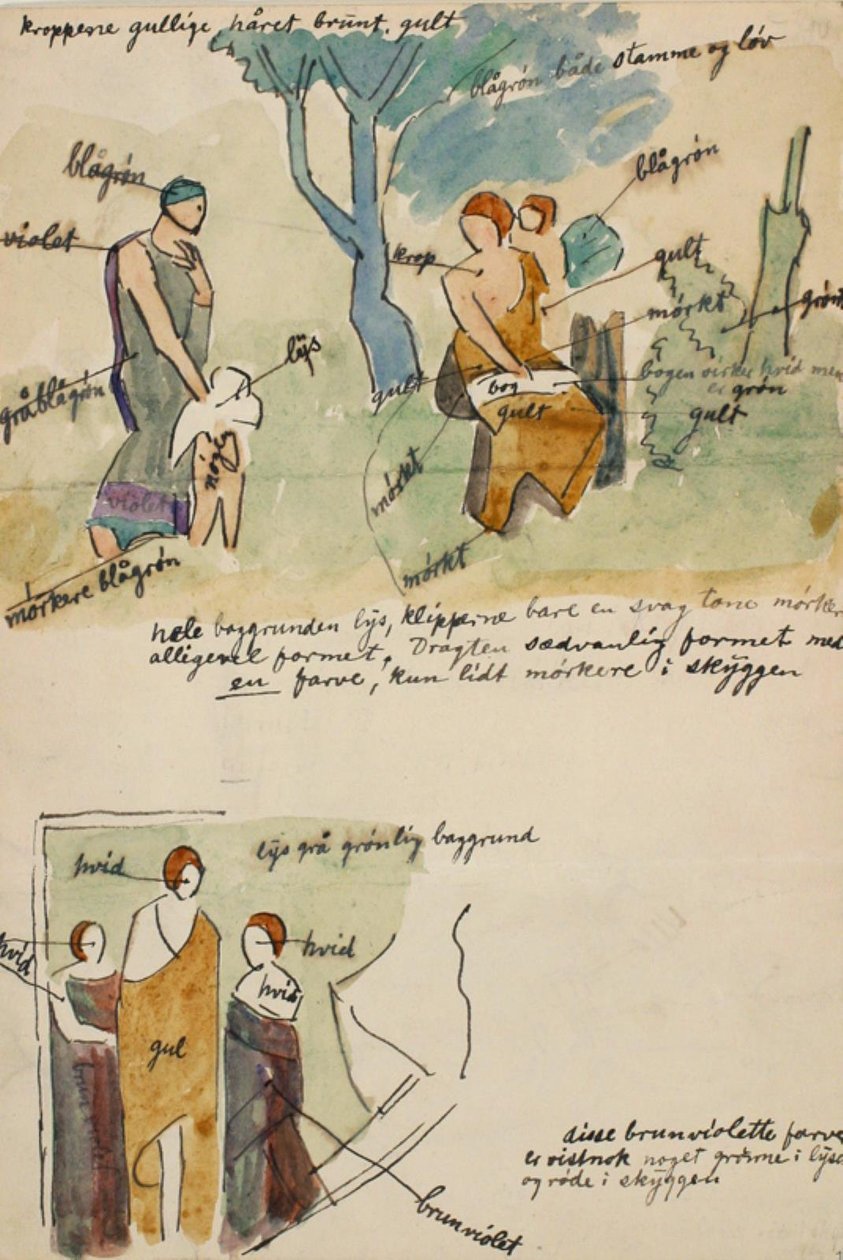 kroppene gullige, håret brunt. gult
blågrøn både stamme og løv
blågrøn
blågrøn
violet
krop
gult
mørkt
grønt
lys
gråblågrøn
gult
bog
bogen virker hvid men
er grøn
gult
gult
nøgen
mørkt
violet
mørkt
mørkere blågrøn
hele baggrunden lys, klipperne bare en svag tone mørkere
alligevel formet. Dragten sædvanlig formet med
en farve, kun lidt mørkere i skyggen
lys grå grønlig baggrund
hvid
hvid
hvid
hvid
gul
brunviolet
disse brunviolette farver
er vistnok noget grønne i lyset
og røde i skyggen
brunviolet